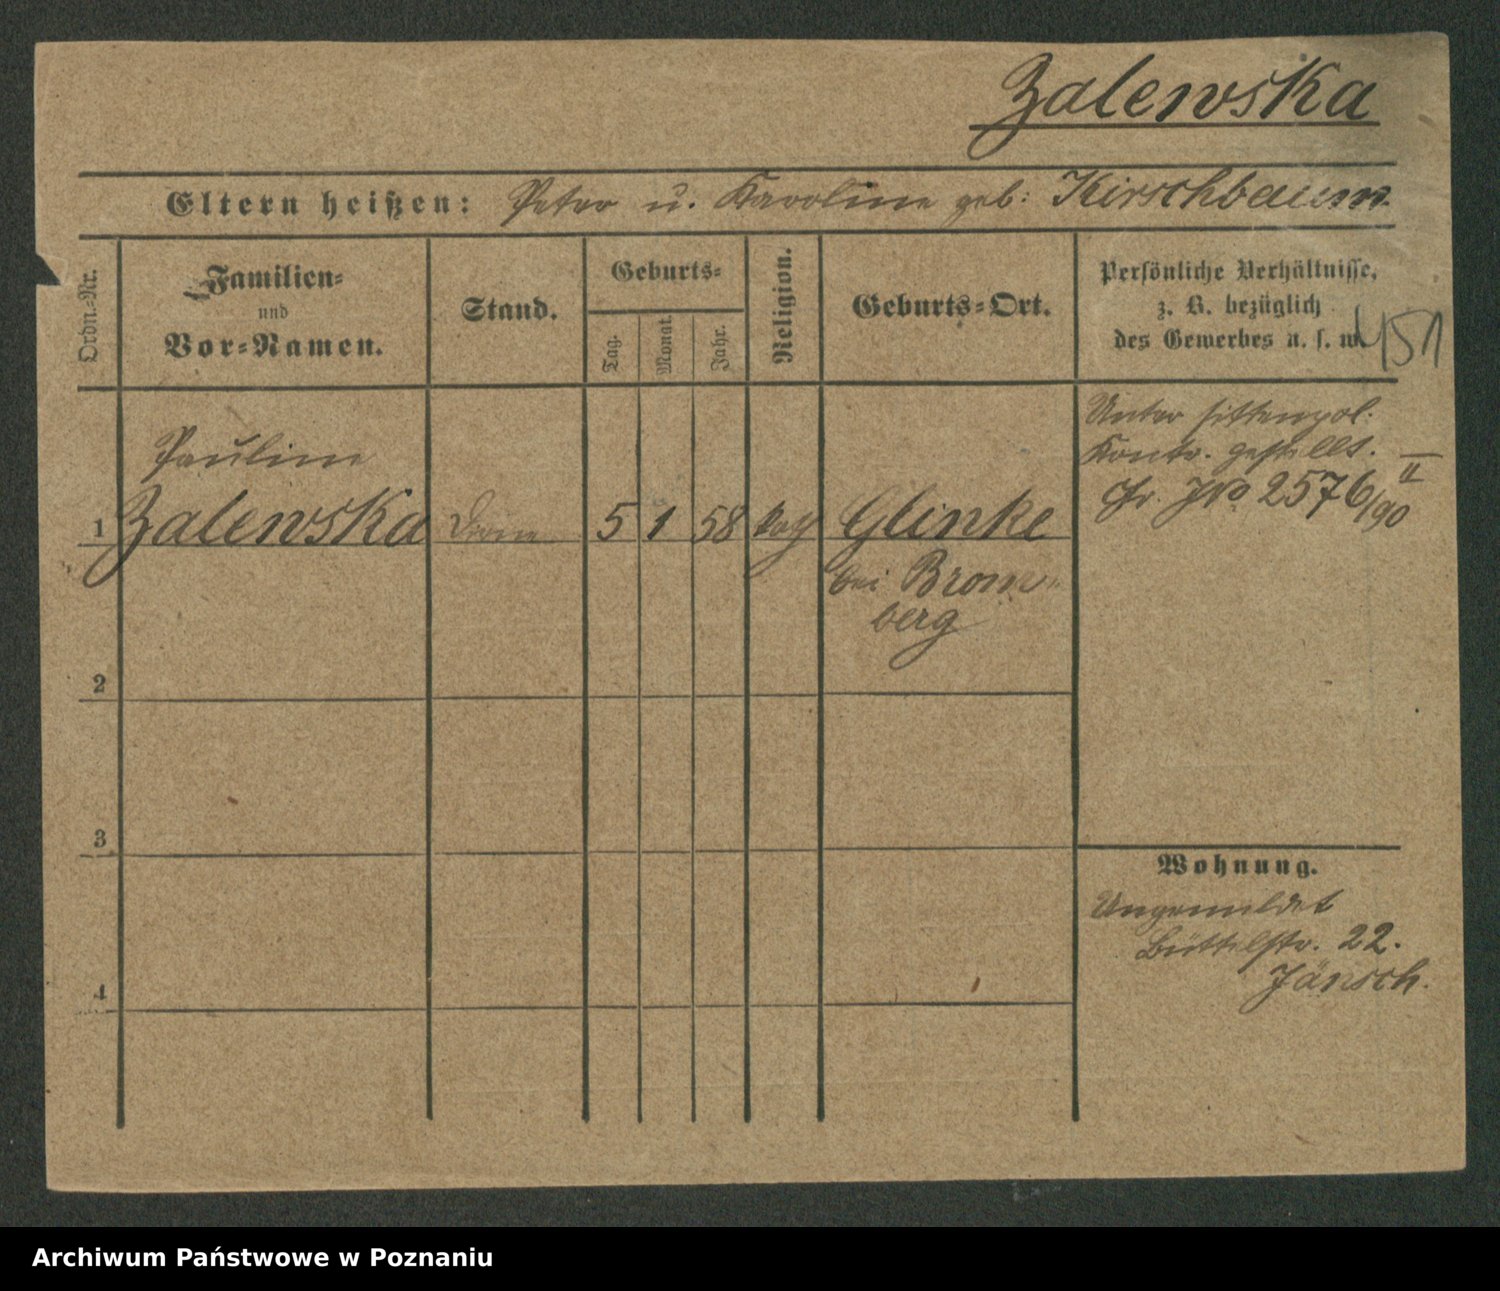 Zalewska
Eltern heißen: Peter u. Karoline geb: Kirschbaum
Ordn.-Nr.
Familien-
und
Vor-Namen.
Stand.
Geburts-
Tag.
Monat.
Jahr.
Religion.
Geburts-Ort.
Persönliche Verhältnisse,
z. B. bezüglich
des Gewerbes u. s. w.
451
Unter sittenpol.
Kontr. gestellt.
II
2576/90
Pauline
1 Zalewska Dirne 5 1 58 kath Glinke
bei Brom-
berg
2
3
4
Wohnung.
Ungemeldet
Büttelstr. 22.
Jänsch.
Archiwum Państwowe w Poznaniu